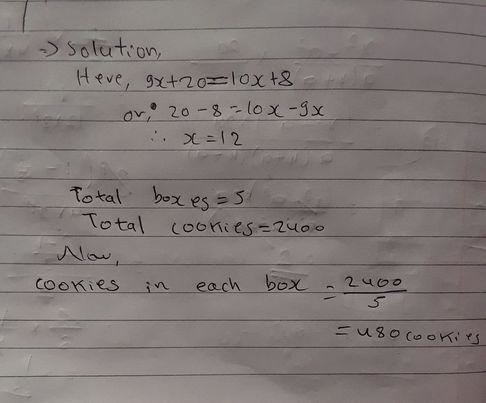 => Solution,
Here, 9x+20=10x+8
or, 20-8=10x-9x
∴ x=12
Total boxes=5
Total cookies=2400
Now,
cookies in each box = 2400/5
= 480 cookies